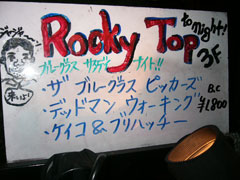 ジャジャーン
Rocky Top
tonight!
3F
ブルーグラス サタデーナイト!!
来いよ!
・ザ ブルーグラス ピッカーズ
・デッドマン ウォーキング
・ケイコ & ブリハッチー
B.C
¥1,800